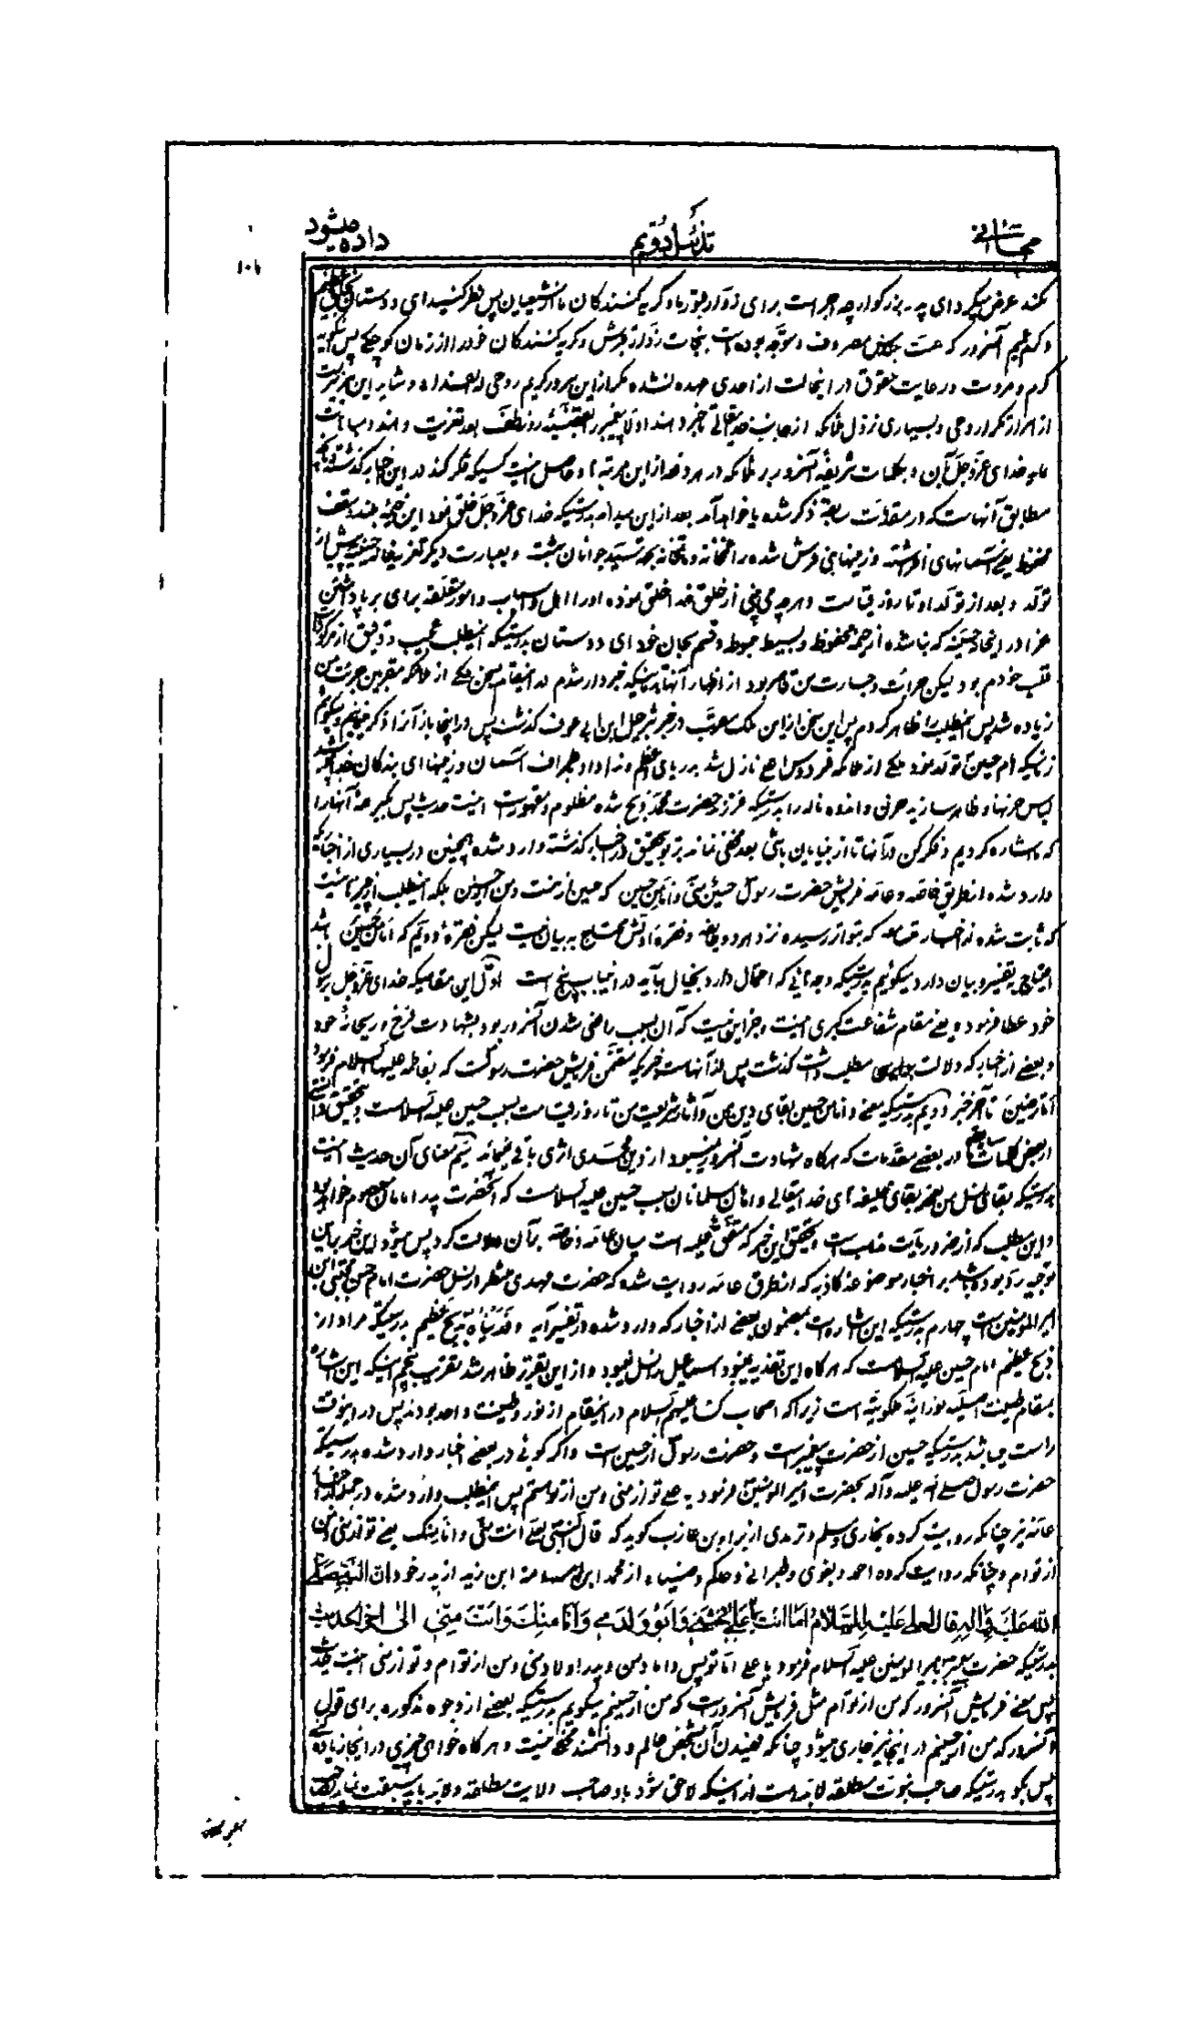 تذئیل دویم
داده میشود
۱۰۶
کند عرض میکرد ای پدر بزرگوار چه اجر است برای زوار قبور ما و گریه کنندگان ما از شیعیان پس نظر کنید ای دوستان
و کنیم آنسرور که معروف و متوجه بوده است بنجات زوار قبرش و گریه کنندگان خود را از زمان کوچکی پس
کرم و مروت و رعایت حقوق در اینحالت از احدی عهده نشده مگر از این سرور کریم روحی له الفداء و شاید این
از اسرار تکرار وحی و بسیاری نزول ملائکه از جانب خدایتعالی
خدای عز و جل بآن و بکلمات شریفه آنسرور بر ملائکه در هر دفعه از این مرتبه‌ها و حاصل اینست کسیکه فکر کند در این اخبار گذشته
مطابق آنهاست که در مقدمات سابقة ذکر شده یا خواهد آمد بعد از این میداند بدرستیکه خدای عز و جل خلق نمود این خیمه بلند و سقف
محفوظ یعنی آسمانهای افراشته و زمینهای فرش شده را سید جوانان بهشت و بعبارت دیگر تعزیه خانه حسینیه پیش از
تولد و بعد از تولد او تا روز قیامت و هر چه می بینی از خلق خدا خلق نموده او را اهل و اسباب و امور متعلقه برای برپا داشتن
عزا در اینجا حسینیه که بنا شده از خیمه محفوظ و بسیط مبسوط و قسم بجان خود ای دوستان بدرستیکه اینمطلب عجیب و دقیق از مرکوز
قلب خودم بود لیکن جرأت و جسارت من قاصر بود از اظهار آنها تا اینکه خبردار شدم در اینمقام بسخن ملکی از ملائکه مقربین جرئت من
زیاده شد پس اینمطلب را ظاهر کردم پس این سخن از این ملک در خبر شرحبیل ابن ابی عوف گذشت پس در اینجا باز آنرا ذکر
زمانیکه امام حسین تولد نمود ملکی از ملائکه فردوس اعلی نازل شد بدریای اعظم و ندا داد در اطراف آسمان و زمینها ای بندگان خدا
لباس حزنها و ظاهر سازید حزن و اندوه و ناله را بدرستیکه فرزند حضرت محمد ذبیح شده مظلوم و مقهور است اینست حدیث پس بگیر همه آنها را
که اشاره کردیم و فکر کن در آنها تا از بینایان باشی بعد مخفی نماند بر تو بتحقیق در اخبار گذشته وارد شده همچنین در بسیاری از اخباریکه
وارد شده از طریق خاصه و عامه فرمایش حضرت رسول حسین منی و انا من حسین که حسین از منست و من از حسین بلکه اینمطلب از چیزهائیست
که ثابت شده در اخبار که بتواتر رسیده نزد هر دو طایفه و فقره اولش محتاج به بیان نیست لیکن فقره دویم که انا من حسین باشد
احتیاج بتفسیر و بیان دارد میگوئیم بدرستیکه وجه‌هائی که احتمال دارد بخیال بیاید در اینباب پنج است اول این مقامیکه خدای عز و جل برسول
خود عطا فرموده یعنی مقام شفاعت کبری اینست و جز این نیست که آن بسبب راضی شدن آنسرور بود بشهادت فرخ و ریحانه خود
و بعضی از اخبار که دلالت بر این مطلب داشت گذشت پس از آنهاست خبریکه متضمن فرمایش حضرت رسولست که بفاطمه علیها السلام فرمود
تا آخر خبر دویم بدرستیکه معنی و انا من حسین بقای دین من و آثار شریعت من تا روز قیامت بسبب حسین علیه السلام است و بتحقیق دانستی
از بعض کلمات سابقه در بعضی مقدمات که هرگاه شهادت آنسرور نمیبود از دین محمدی اثری باقی نمیماند سیم معنای آن حدیث اینست
بدرستیکه بقای نسل من یعنی بقای خلیفه‌های خدایتعالی و امامان مسلمانان بسبب حسین علیه السلام است که آنحضرت پدر امامان معصوم خواهد بود
و این مطلب که از ضروریات مذهب است و بتحقیق این خبر که متفق علیه است میان عامه و خاصه بر آن دلالت کرد پس میشود این خبر باین
توجیه رد بوده باشد بر اخبار موضوعه کاذبه که از طرق عامه روایت شده که حضرت مهدی منتظر از نسل حضرت امام حسن مجتبی ابن
امیر المؤمنین است چهارم بدرستیکه این اشاره است بمضمون بعضی از اخبار که وارد شده در تفسیر آیه و فدیناه بذبح عظیم بدرستیکه مراد از
ذبح عظیم امام حسین علیه السلام است که هرگاه این فدیه نمیبود اسماعیل را نسل نمیبود و از این تقریر ظاهر شد تقریب پنجم اینکه این اشاره
بمقام طینت اصلیه نورانیه ملکوتیه است زیرا که اصحاب کساء علیهم السلام در اینمقام از نور و طینت واحد بودند پس در اینوقت
راست میباشد بدرستیکه حسین از حضرت پیغمبر است و حضرت رسول از حسین است و اگر گوئی در بعضی اخبار وارد شده بدرستیکه
حضرت رسول صلی الله علیه و آله بحضرت امیر المؤمنین فرمود یا علی تو از منی و من از تو هستم پس اینمطلب وارد شده در جمله اخبار
عامه نیز چنانکه روایت کرده بخاری و مسلم و ترمذی از براء بن عازب گوید که قال النبی لعلی انت منی و انا منک یعنی تو از منی و من
از توام و چنانکه روایت کرده احمد و بغوی و طبرانی و حاکم و ضیاء از محمد ابن اسامة ابن زید از پدر خود ان النبی صلی
الله علیه و اله قال لعلی علیه السلام اما انت یا علی فختنی و ابو ولدی و انا منک و انت منی الی اخر الحدیث
بدرستیکه حضرت پیغمبر بامیر المؤمنین علیه السلام فرمود یا علی اما تو پس داماد من و پدر اولاد منی و من از توام و تو از منی اینست حدیث
پس معنی فرمایش آنسرور که من از توام مثل فرمایش آنسرور است که من از حسینم میگویم بدرستیکه بعضی از وجوه مذکوره برای قول
آنسرور که من از حسینم در اینجا نیز جاری میشود چنانکه فهمیدن آن بشخص عالم و دانشمند مخفی نیست و هرگاه خواهی چیزی در اینجا زیاده کنی
پس بگو بدرستیکه صاحب نبوت مطلقه لابد است از اینکه لاحق شود باو صاحب ولایت مطلقه و لابد باید سبقت نماید